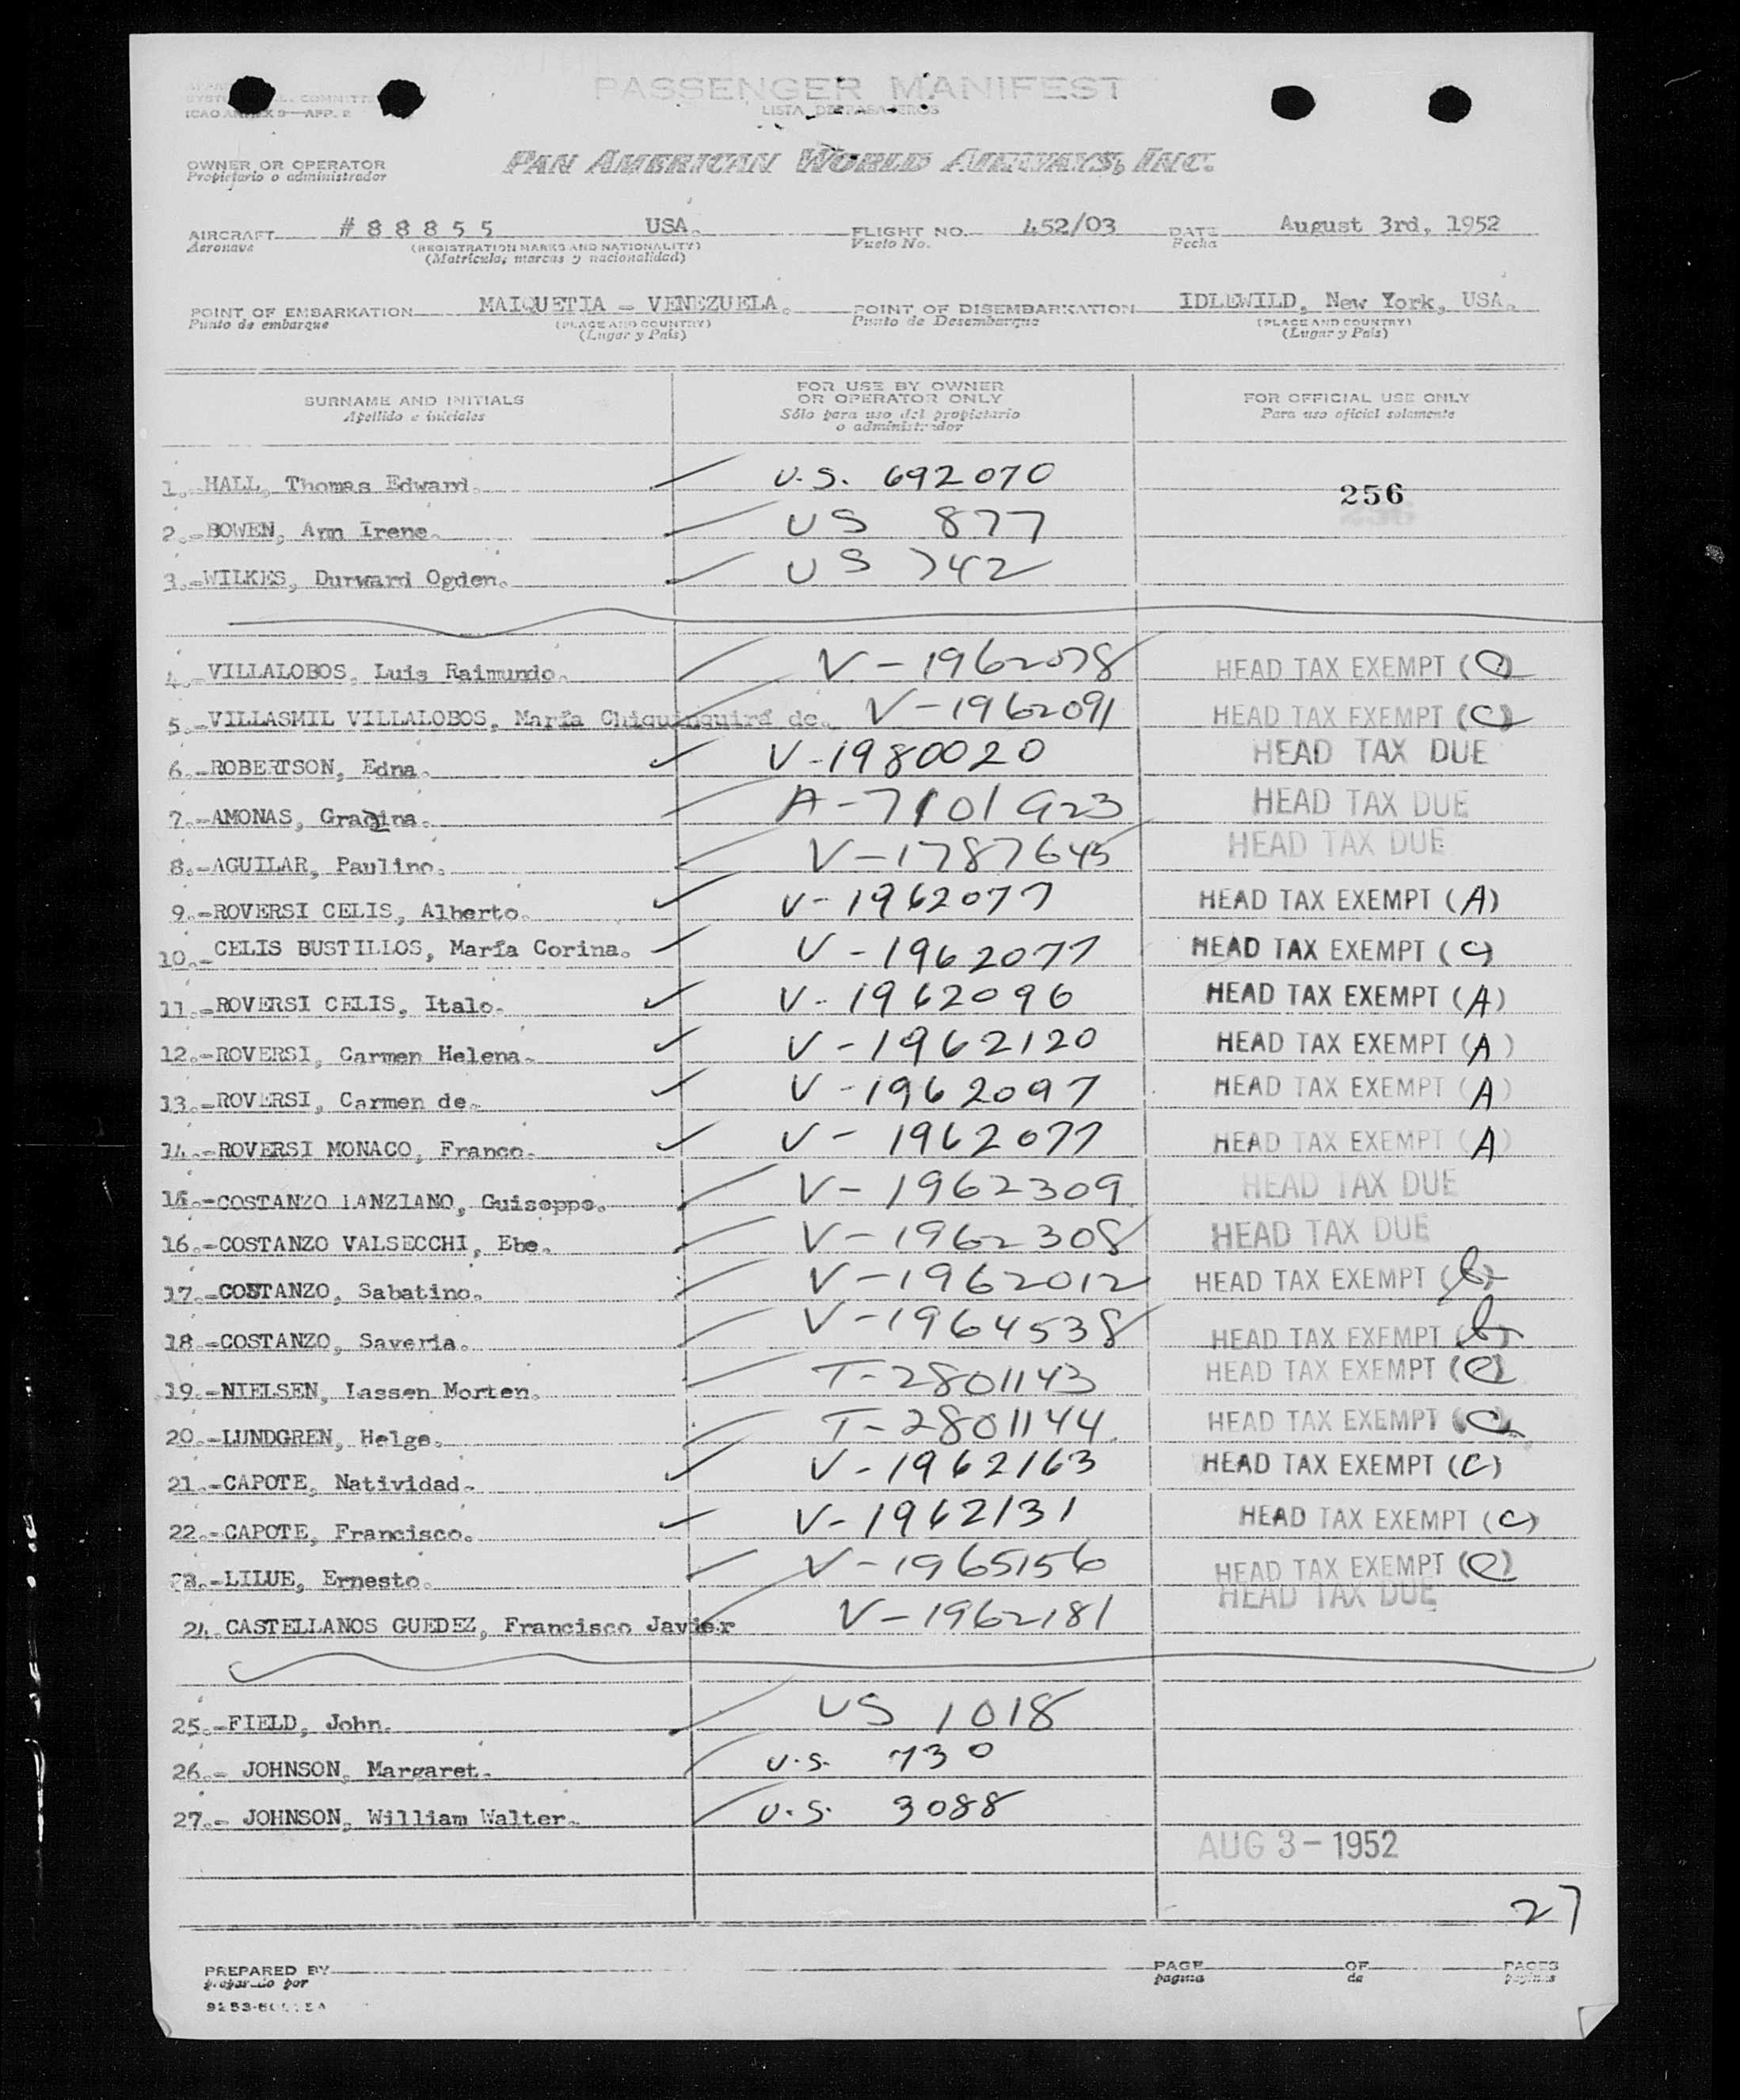 PASSENGER MANIFEST
LISTA DE PASAJEROS
ICAO ANNEX 9—APP. 2
OWNER OR OPERATOR
Propietario o administrador
PAN AMERICAN WORLD AIRWAYS, INC.
AIRCRAFT # 8 8 8 5 5 USA. FLIGHT NO. 452/03 DATE August 3rd, 1952
Aeronave (REGISTRATION MARKS AND NATIONALITY) Vuelo No. Fecha
(Matrícula, marcas y nacionalidad)
POINT OF EMBARKATION MAIQUETIA - VENEZUELA. POINT OF DISEMBARKATION IDLEWILD, New York, USA.
Punto de embarque (PLACE AND COUNTRY) Punto de Desembarque (PLACE AND COUNTRY)
(Lugar y País) (Lugar y País)
SURNAME AND INITIALS
Apellido e iniciales
FOR USE BY OWNER
OR OPERATOR ONLY
Sólo para uso del propietario
o administrador
FOR OFFICIAL USE ONLY
Para uso oficial solamente
1.-HALL, Thomas Edward. U.S. 692070 256
2.-BOWEN, Ann Irene. US 877
3.-WILKES, Durward Ogden. US 742
4.-VILLALOBOS, Luis Raimundo. V-1962078 HEAD TAX EXEMPT (C)
5.-VILLASMIL VILLALOBOS, María Chiquinquirá de. V-1962091 HEAD TAX EXEMPT (C)
6.-ROBERTSON, Edna. V-1980020 HEAD TAX DUE
7.-AMONAS, Gracina. A-7101923 HEAD TAX DUE
8.-AGUILAR, Paulino. V-1787645 HEAD TAX DUE
9.-ROVERSI CELIS, Alberto. V-1962077 HEAD TAX EXEMPT (A)
10.-CELIS BUSTILLOS, María Corina. V-1962077 HEAD TAX EXEMPT (C)
11.-ROVERSI CELIS, Italo. V-1962096 HEAD TAX EXEMPT (A)
12.-ROVERSI, Carmen Helena. V-1962120 HEAD TAX EXEMPT (A)
13.-ROVERSI, Carmen de. V-1962097 HEAD TAX EXEMPT (A)
14.-ROVERSI MONACO, Franco. V-1962077 HEAD TAX EXEMPT (A)
15.-COSTANZO LANZIANO, Guiseppe. V-1962309 HEAD TAX DUE
16.-COSTANZO VALSECCHI, Ebe. V-1962308 HEAD TAX DUE
17.-COSTANZO, Sabatino. V-1962012 HEAD TAX EXEMPT (b)
18.-COSTANZO, Saveria. V-1964538 HEAD TAX EXEMPT (b)
19.-NIELSEN, Lassen Morten. T-2801143 HEAD TAX EXEMPT (C)
20.-LUNDGREN, Helge. T-2801144 HEAD TAX EXEMPT (C)
21.-CAPOTE, Natividad. V-1962163 HEAD TAX EXEMPT (C)
22.-CAPOTE, Francisco. V-1962131 HEAD TAX EXEMPT (C)
23.-LILUE, Ernesto. V-1965156 HEAD TAX EXEMPT (C)
24.CASTELLANOS GUEDEZ, Francisco Javier V-1962181 HEAD TAX DUE
25.-FIELD, John. US 1018
26.- JOHNSON, Margaret. U.S. 730
27.- JOHNSON, William Walter. U.S. 3088
AUG 3 - 1952
27
PREPARED BY PAGE OF PAGES
preparado por pagina de páginas